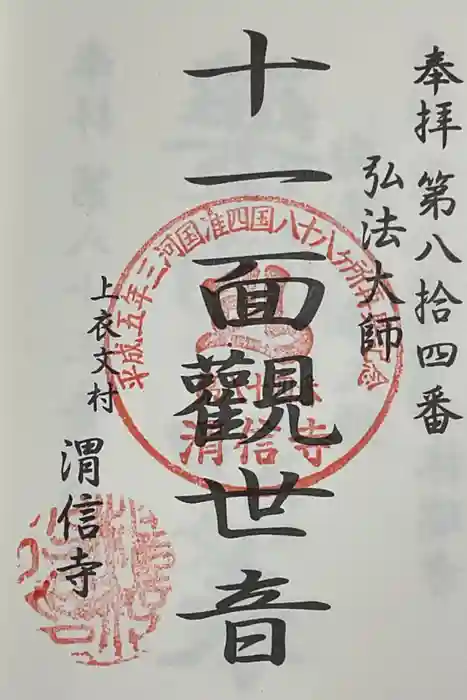 奉拝 第八拾四番
弘法大師
十一面觀世音
平成五年三河国准四国八十八ケ所
渭信寺
上衣文村
渭信寺